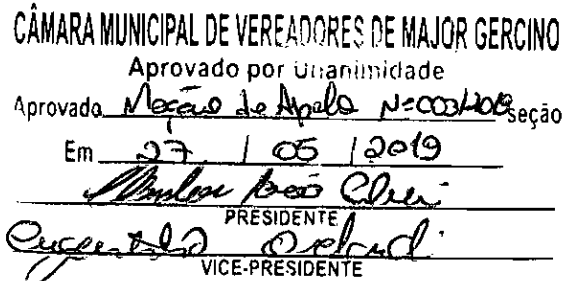 CÂMARA MUNICIPAL DE VEREADORES DE MAJOR GERCINO
Aprovado por Unanimidade
Aprovado Moção de Apelo Nº 003/2019 seção
Em 27 / 05 / 2019
PRESIDENTE
VICE-PRESIDENTE